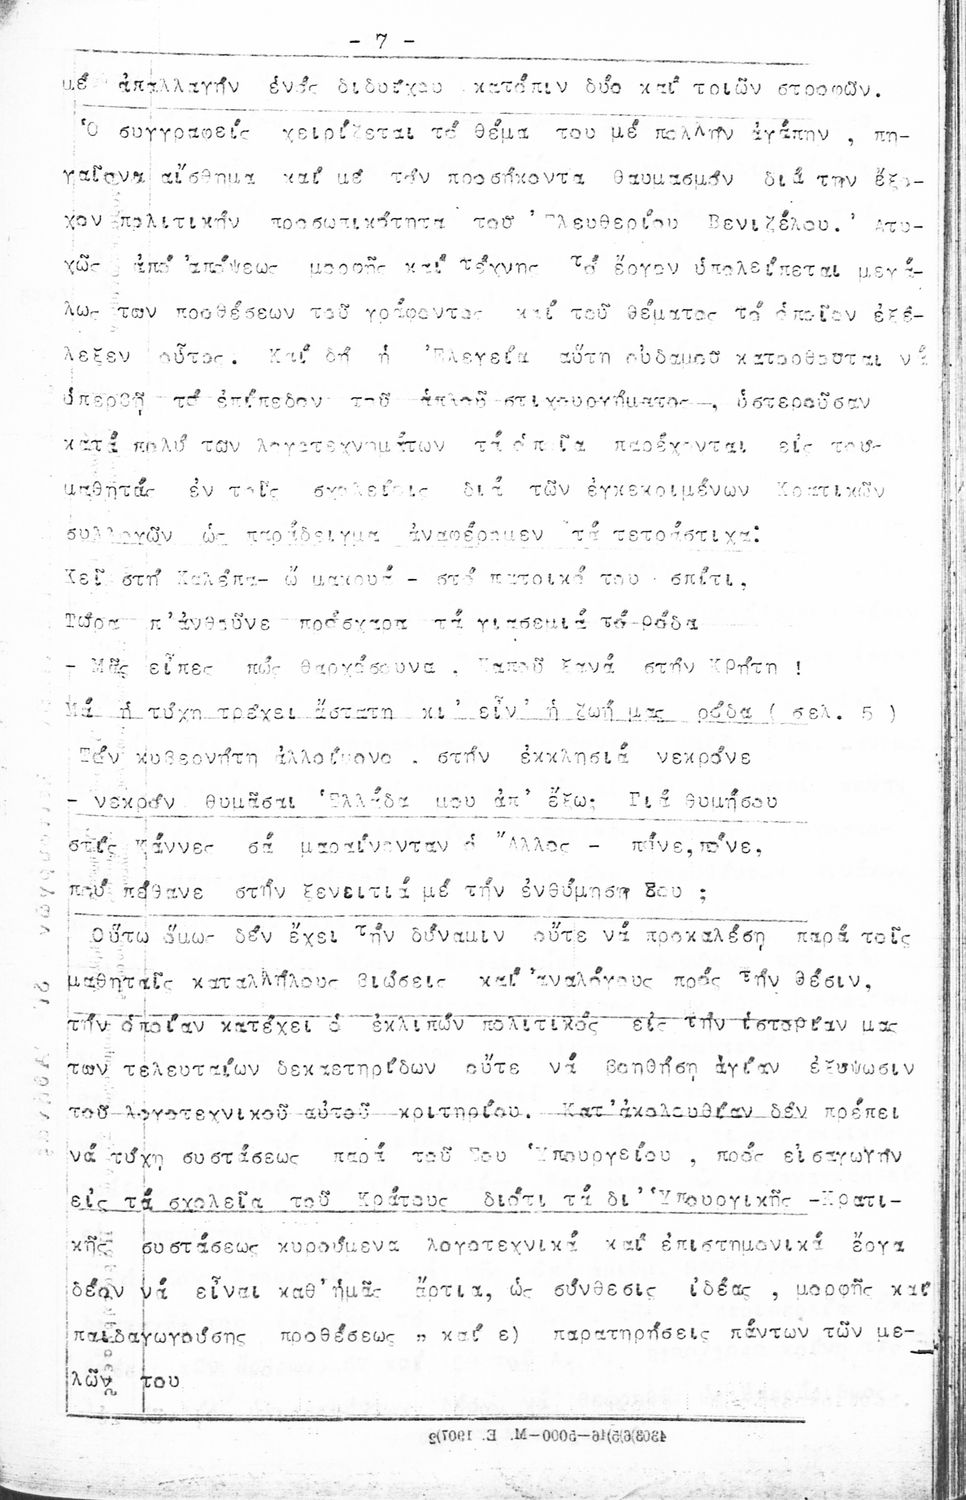 - 7 -
μέ ἀπαλλαγήν ἑνός διδύχου κατόπιν δύο καί τριῶν στροφῶν.
Ὁ συγγραφεύς χειρίζεται τό θέμα του μέ πολλήν ἀγάπην , πη-
γαῖον αἴσθημα καί μέ τόν προσήκοντα θαυμασμόν διά την ἔξο-
χον πολιτικήν προσωπικότητα τοῦ 'Ελευθερίου Βενιζέλου.' Ατυ-
χῶς ἀπό ἀπόψεως μορφῆς καί τέχνης τό ἔργον ὑπολείπεται μεγά-
λως των προθέσεων τοῦ γράφοντος καί τοῦ θέματος τό ὁποῖον ἐξέ-
λεξεν οὗτος. Καί δή ἡ 'Ελεγεία αὕτη οὐδαμοῦ κατορθοῦται νά
ὑπερβῇ τό ἐπίπεδον τοῦ ἁπλοῦ στιχουργήματος , ὑστεροῦσαν
κατά πολύ των λογοτεχνημάτων τά ὁποῖα παρέχονται εἰς τους
μαθητάς ἐν τοῖς σχολείοις διά τῶν ἐγκεκριμένων Κρατικῶν
συλλογῶν ὡς παράδειγμα ἀναφέρομεν τά τετράστιχα:
Κεῖ στή Χαλέπα- ὤ μακρυά - στό πατρικό του σπίτι,
Τώρα π'ἀνθοῦνε πρόσχαρα τά γιασεμιά τά ρόδα
- Μᾶς εἶπες πώς θαρχόσουνα . Καποῦ ξανά στήν Κρήτη !
Μά ἡ τύχη τρέχει ἄστατη κι' εἶν' ἡ ζωή μας ρόδα ( σελ. 5 )
Τόν κυβερνήτη ἀλλοίμονο . στήν ἐκκλησιά νεκρόνε
- νεκρόν θυμᾶσαι Ἑλλάδα μου ἀπ' ἔξω; Γιά θυμήσου
στίς Κάννες σά μαραίνονταν ὁ "Αλλος - πόνε, πόνε,
πού πέθανε στήν ξενειτιά μέ τήν ἐνθύμηση Σου ;
Οὕτω ὅμως δέν ἔχει τήν δύναμιν οὔτε νά προκαλέσῃ παρά τοῖς
μαθηταῖς καταλλήλους βιώσεις καί ἀναλόγους πρός τήν θέσιν,
τήν ὁποίαν κατέχει ὁ ἐκλιπών πολιτικός εἰς τήν ἱστορίαν μας
των τελευταίων δεκαετηρίδων οὔτε νά βοηθήσῃ ἁγίαν ἐξυψωσιν
τοῦ λογοτεχνικοῦ αὐτοῦ κριτηρίου. Κατ'ἀκολουθίαν δέν πρέπει
νά τύχη συστάσεως παρά τοῦ Σου Ὑπουργείου , πρός εἰσαγωγήν
εἰς τά σχολεῖα τοῦ Κράτους διότι τά δι' Ὑπουργικῆς -Κρατι-
κῆς συστάσεως κυρούμενα λογοτεχνικά καί ἐπιστημονικά ἔργα
δέον νά εἶναι καθ'ἡμᾶς ἄρτια, ὡς σύνθεσις ἰδέας , μορφῆς καί
παιδαγωγούσης προθέσεως „ καί ε) παρατηρήσεις πάντων τῶν με-
λῶν του
4308)(6)5)46-5000-Μ. Ε. 1907)g